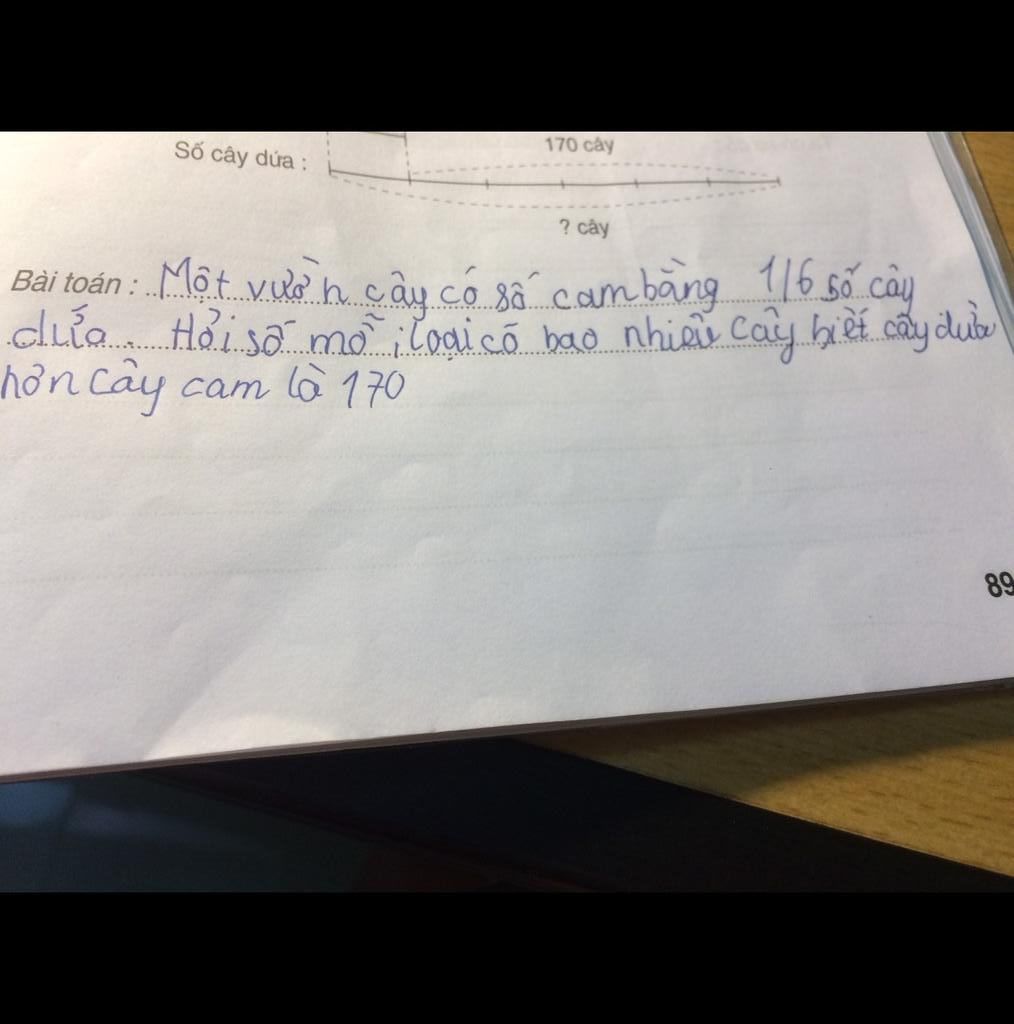 170 cây
Số cây dứa :
? cây
Bài toán : Một vườn cây có số cam bằng 1/6 số cây
dứa. Hỏi số mỗi loại có bao nhiêu cây biết cây dứa
hơn cây cam là 170
89